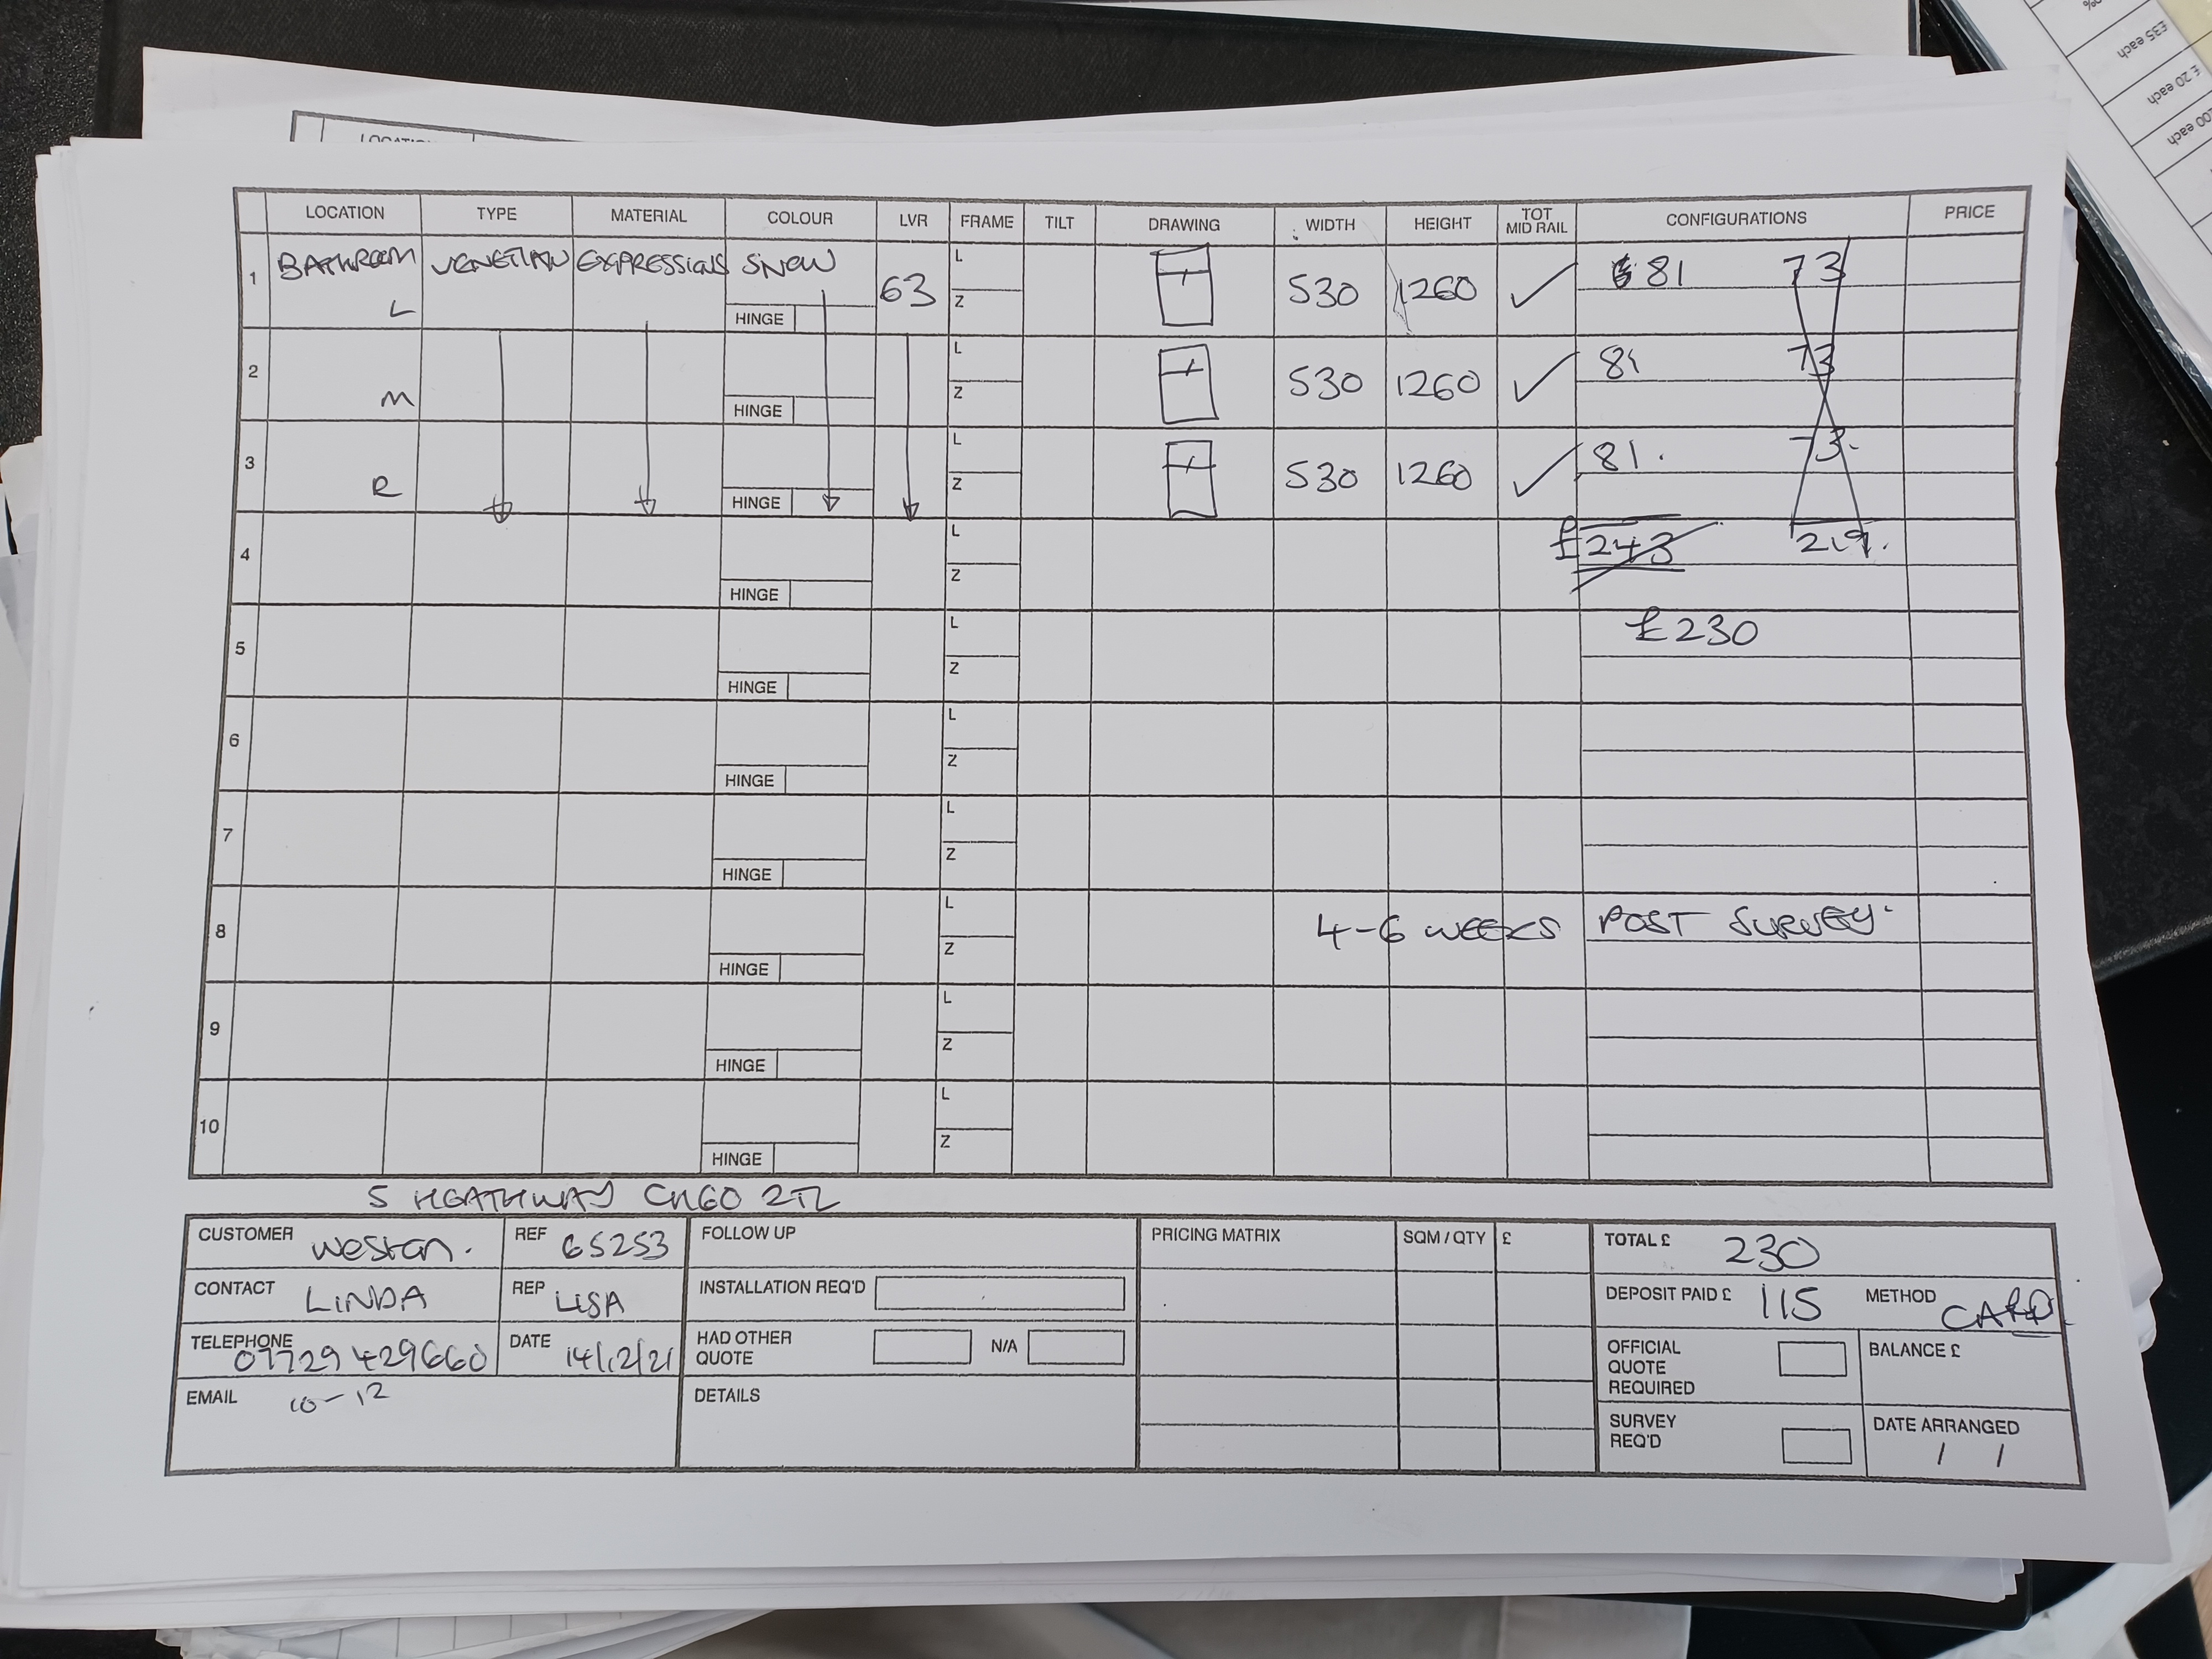 £35 each
£20 each
00 each
LOCATION TYPE MATERIAL COLOUR LVR FRAME TILT DRAWING WIDTH HEIGHT TOT MID RAIL CONFIGURATIONS PRICE
1 BATHROOM L VENETIAN EXPRESSIONS SNOW HINGE 63 L Z 530 1260 ✓ 81 73
2 M HINGE L Z 530 1260 ✓ 81 73
3 R HINGE L Z 530 1260 ✓ 81. 73.
4 HINGE L Z £243 219.
5 HINGE L Z £230
6 HINGE L Z
7 HINGE L Z
8 HINGE L Z 4-6 WEEKS POST SURVEY
9 HINGE L Z
10 HINGE L Z
5 HEATHWAY CH60 2TL
CUSTOMER Weston. REF 65253 FOLLOW UP PRICING MATRIX SQM / QTY £ TOTAL £ 230
CONTACT LINDA REP LISA INSTALLATION REQ'D DEPOSIT PAID £ 115 METHOD CARD
TELEPHONE 07729 429660 DATE 14/12/21 HAD OTHER QUOTE N/A OFFICIAL QUOTE REQUIRED BALANCE £
EMAIL 10-12 DETAILS SURVEY REQ'D DATE ARRANGED / /